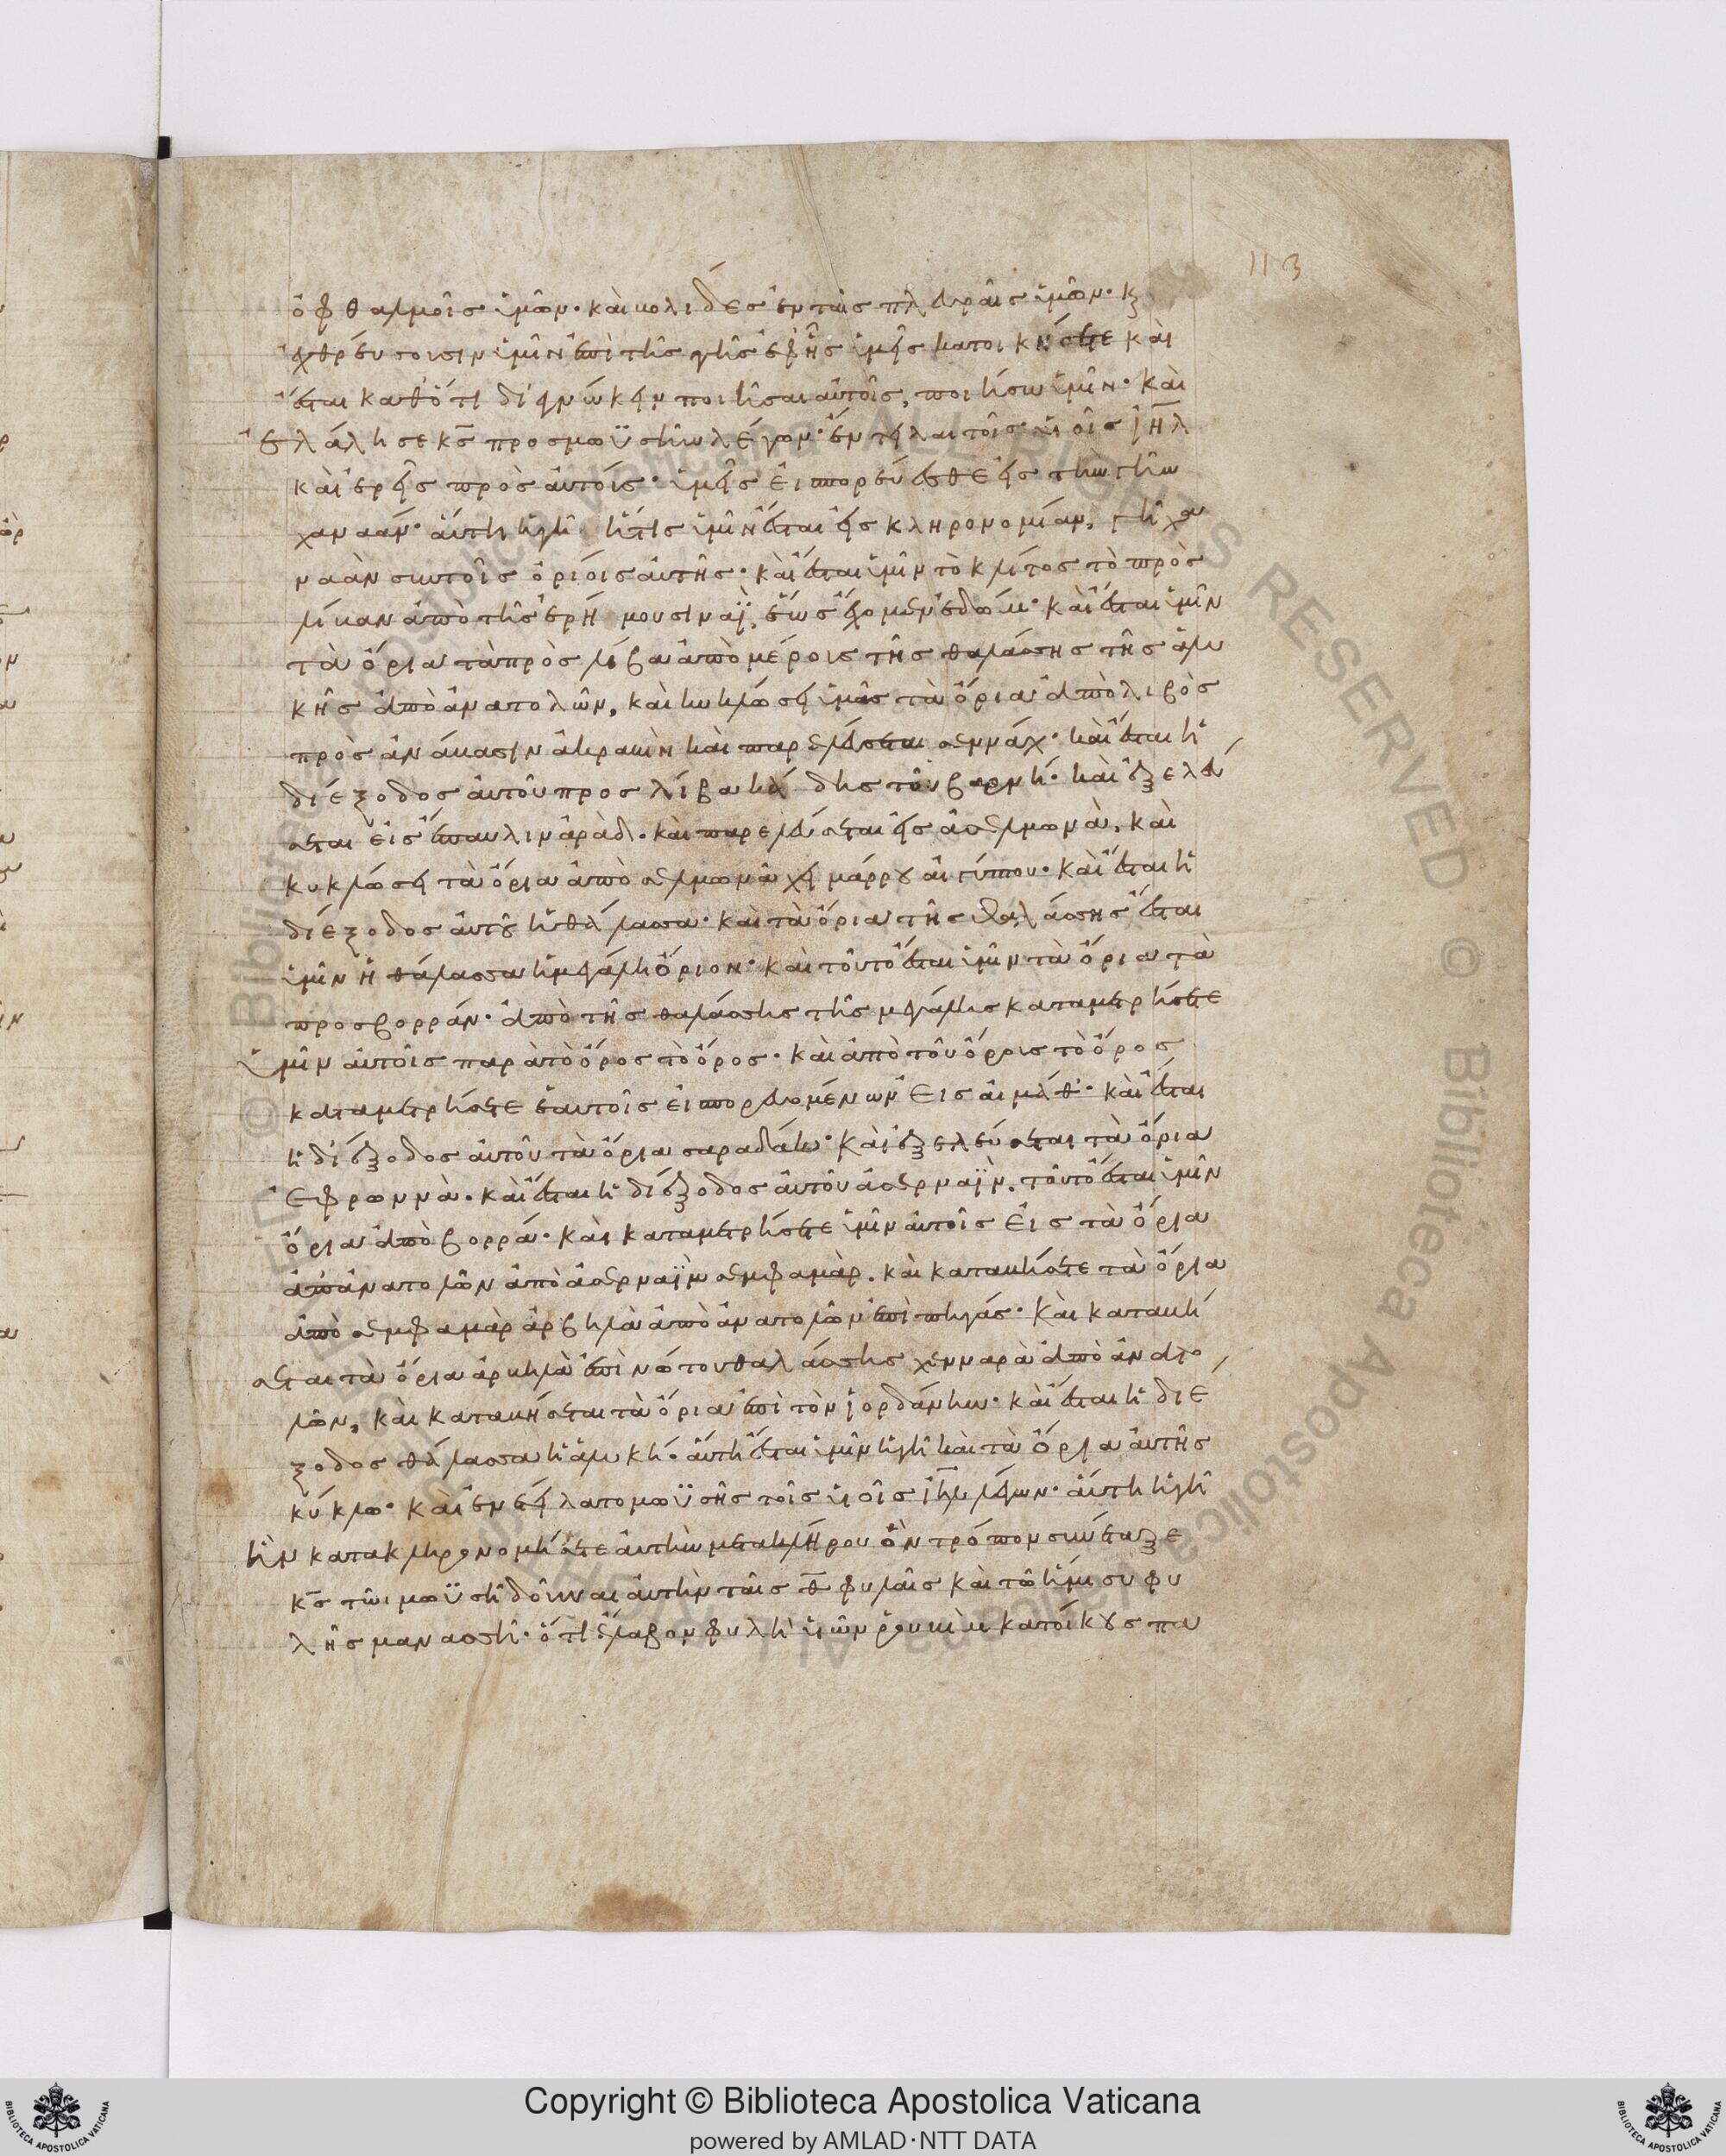 113
ὀφθαλμοῖς ὑμῶν· καὶ βολίδες ἐν ταῖς πλευραῖς ὑμῶν· κ
ἐχθρεύσουσιν ὑμῖν ἐπὶ τῆς γῆς ἐφ' ἧς ὑμεῖς κατοικήσετε καὶ
ἔσται καθότι διεγνώκειν ποιῆσαι αὐτοῖς, ποιήσω ὑμῖν· καὶ
ἐλάλησε κς προς μωϋσῆν λέγων· ἔντειλαι τοῖς υἱοῖς ιηλ
καὶ ἐρεῖς πρὸς αὐτούς· ὑμεῖς εἰσπορεύεσθε εἰς τὴν γῆν
χαναάν· αὕτη ἡ γῆ ἥτις ὑμῖν ἔσται εἰς κληρονομίαν, γῆ χα
ναὰν συν τοῖς ὁρίοις αὐτῆς· καὶ ἔσται ὑμῖν τὸ κλίτος τὸ πρὸς
λίβαν ἀπὸ τῆς ἐρήμου σιναῒ, ἕως ἐχόμενον ἐδώμ· καὶ ἔσται ὑμῖν
τὰ ὅρια τὰ πρὸς λίβα ἀπὸ μέρους τῆς θαλάσσης τῆς ἁλυ
κῆς ἀπὸ ἀνατολῶν, καὶ κυκλώσει ὑμᾶς τὰ ὅρια ἀπὸ λιβὸς
πρὸς ἀνάβασιν ἀκραβὶν καὶ παρελεύσεται σεννάχ· καὶ ἔσται ἡ
διέξοδος αὐτοῦ προς λίβα κάδης τοῦ βαρνή· καὶ ἐξελεύ
σεται εἰς ἔπαυλιν ἀράδ· καὶ παρελεύσεται εἰς ἀσελμωνὰ, καὶ
κυκλώσει τὰ ὅρια ἀπὸ σελμωνᾶ χειμάρρου αἰγύπτου· καὶ ἔσται ἡ
διέξοδος αὐτοῦ ἡ θάλασσα· καὶ τὰ ὅρια τῆς θαλάσσης ἔσται
ὑμῖν ἡ θάλασσα ἡ μεγάλη ὅριον· καὶ τοῦτο ἔσται ὑμῖν τὰ ὅρια τὰ
προς βορράν· ἀπὸ τῆς θαλάσσης τῆς μεγάλης καταμετρήσετε
ὑμῖν αὐτοῖς παρὰ τὸ ὄρος τὸ ὄρος· καὶ ἀπὸ τοῦ ὄρους τὸ ὄρος
καταμετρήσετε ἑαυτοῖς εἰσπορευομένων εἰς αἰμάθ· καὶ ἔσται
ἡ διέξοδος αὐτοῦ τὰ ὅρια σαραδάκ· καὶ ἐξελεύσεται τὰ ὅρια
ἐφρωννὰ· καὶ ἔσται ἡ διέξοδος αὐτοῦ ἀσερναῒν. τοῦτο ἔσται ὑμῖν
ὅρια ἀπὸ βορρά· καὶ καταμετρήσετε ὑμῖν αὐτοῖς εἰς τὰ ὅρια
ἀπ' ἀνατολῶν ἀπὸ ἀσερναῒν σεπφαμάρ. καὶ καταβήσετε τὰ ὅρια
ἀπὸ σεπφαμὰρ ἀρβηλὰ ἀπὸ ἀνατολῶν ἐπὶ πηγάς· καὶ καταβή
σεται τὰ ὅρια ἀρβηλὰ ἐπὶ νώτου θαλάσσης χενναρὰ ἀπὸ ἀνατο
λῶν, καὶ καταβήσεται τὰ ὅρια ἐπὶ τὸν ἰορδάνην· καὶ ἔσται ἡ διέ
ξοδος θάλασσα ἡ ἁλυκή· αὕτη ἔσται ὑμῖν ἡ γῆ καὶ τὰ ὅρια αὐτῆς
κύκλω· καὶ ἐνετείλατο μωϋσῆς τοῖς υἱοῖς ιηλ λέγων· αὕτη ἡ γῆ
ἣν κατακληρονομήσετε αὐτὴν μετὰ κλήρου ὃν τρόπον συνέταξε
κς τῶι μωϋσῆ δοῦναι αὐτὴν ταῖς θ φυλαῖς καὶ τῶ ἡμίσυ φυ
λῆς μανασσῆ· ὅτι ἔλαβον φυλὴ υἱῶν ῥουβὶν κατοίκους πα
Copyright © Biblioteca Apostolica Vaticana
powered by AMLAD·NTT DATA